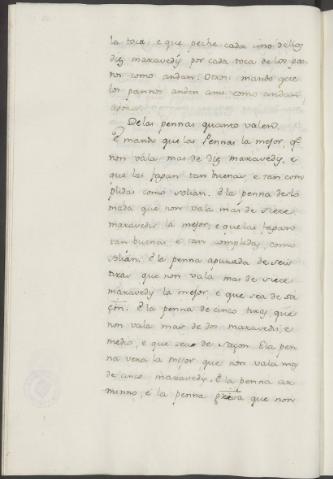 la toca: e que peche cada uno dellos
diez maravedis por cada toca de los pan
nos como andan. Otrosi: mando que
los pannos anden ansi como andan
agora.
De las pennas quanto valen
E mando que las Pennas la mejor, qe
non vala mas de diez maravedis, e
que las fagan tan buenas e tan com
plidas como solian. E la penna deslo
mada que non vala mas de siete
maravedis la mejor, e que las fagan
tan buenas e tan complidas, como
solian. E la penna apurada de seis
tiras que non vala mas de siete
maravedis la mejor, e que sea de sa
çon. E la penna de cinco tiras, que
non vala mas de dos maravedis, e
medio, e que sea de saçon. E la pen
na vera la mejor que non vala mas
de cinco maravedis. E la penna ar
minno, e la penna que non